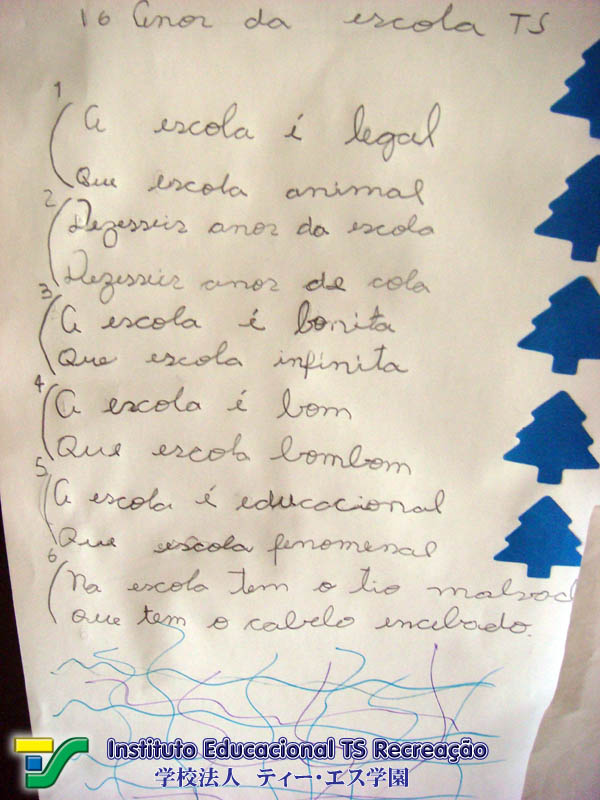 16 Anos da escola TS
1
A escola é legal
Que escola animal
2
Dezesseis anos da escola
Dezesseis anos de cola
3
A escola é bonita
Que escola infinita
4
A escola é bom
Que escola bombom
5
A escola é educacional
Que escola fenomenal
6
Na escola tem o tio
que tem o cabelo encebado.
Instituto Educacional TS Recreação
学校法人 ティー・エス学園